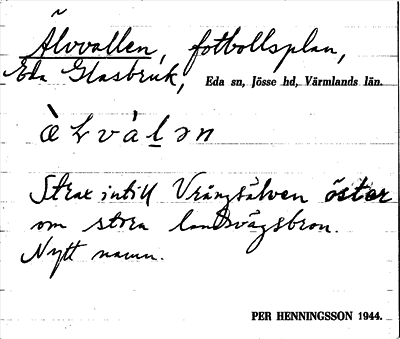 Älvvallen, fotbollsplan,
Eda Glasbruk, Eda sn, Jösse hd, Värmlands län.
æ̀ɬvàḻən
Strax intill Vrångsälven öster
om stora landsvägsbron.
Nytt namn.
PER HENNINGSSON 1944.